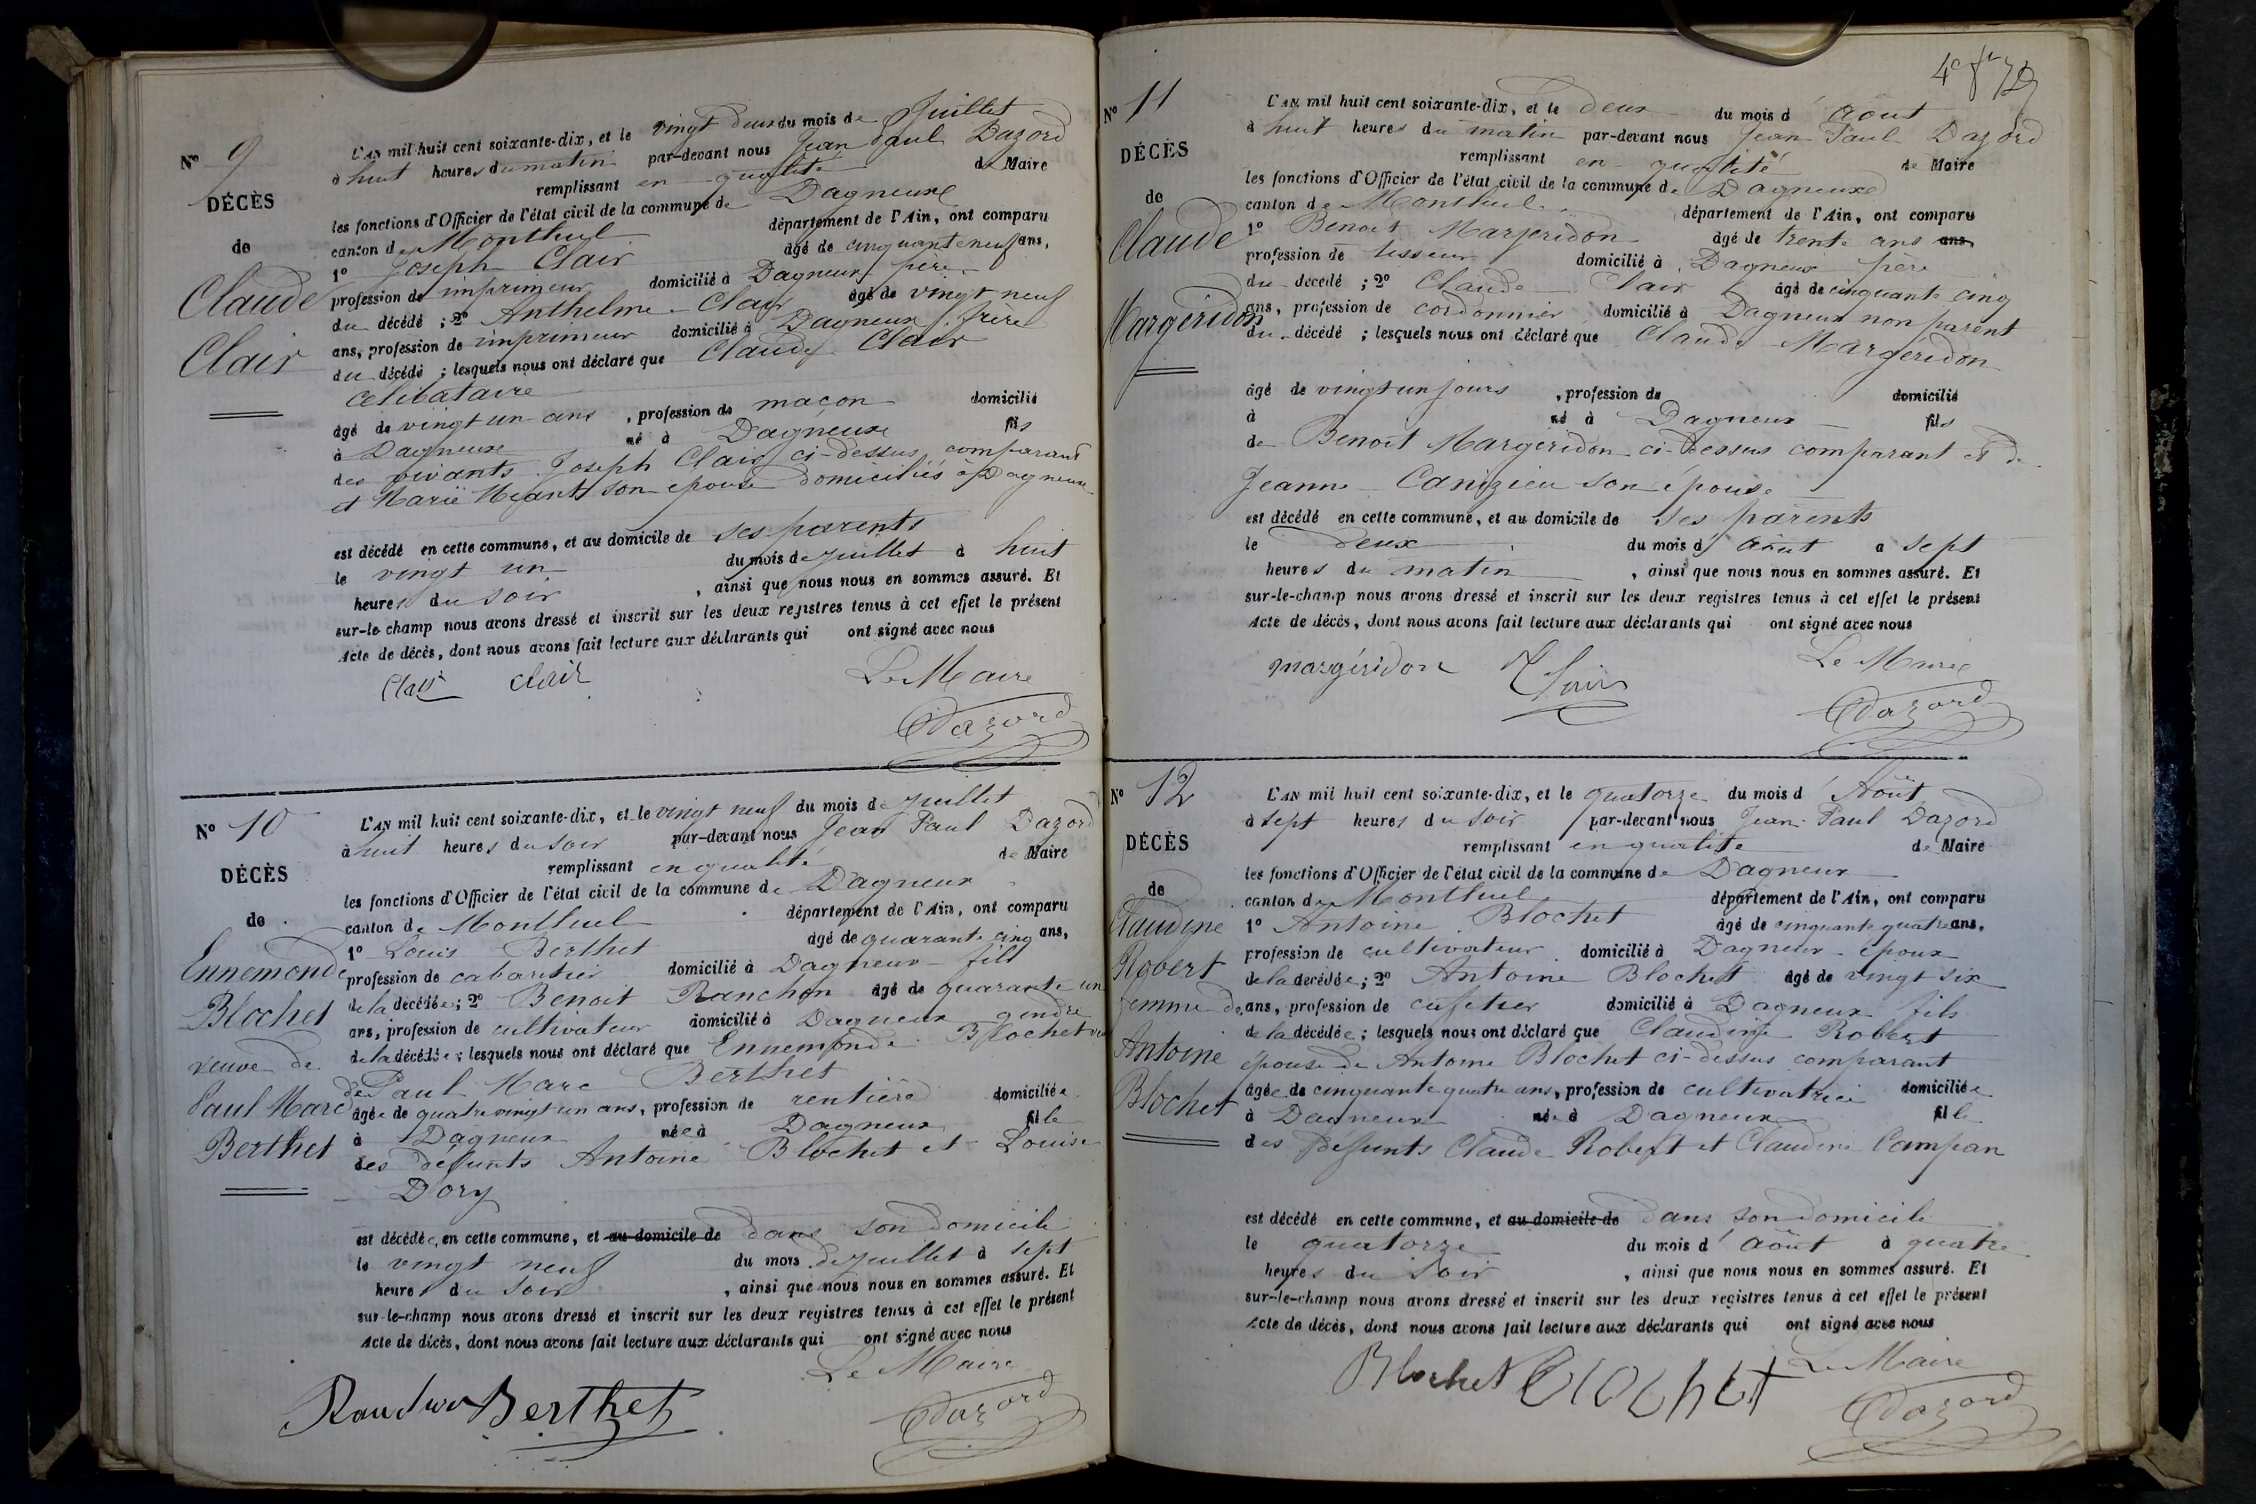 N° 9
DÉCÈS
de
Claude
Clair
L'AN mil huit cent soixante-dix, et le vingt deux du mois de Juillet
à huit heures du matin par-devant nous Jean Paul Dazord
remplissant en qualité de Maire
les fonctions d'Officier de l'état civil de la commune de Dagneux
canton de Montluel département de l'Ain, ont comparu
1° Joseph Clair âgé de cinquante neuf ans,
profession de imprimeur domicilié à Dagneux père
du décédé ; 2° Anthelme Clair âgé de vingt neuf
ans, profession de imprimeur domicilié à Dagneux frère
du décédé ; lesquels nous ont déclaré que Claude Clair
Célibataire
âgé de vingt un ans, profession de maçon domicilié
à Dagneux né à Dagneux fils
des vivants Joseph Clair ci-dessus comparant
et Marie son épouse domiciliés à Dagneux
est décédé en cette commune, et au domicile de ses parents
le vingt un du mois de juillet à huit
heures du soir, ainsi que nous nous en sommes assuré. Et
sur-le-champ nous avons dressé et inscrit sur les deux registres tenus à cet effet le présent
Acte de décès, dont nous avons fait lecture aux déclarants qui ont signé avec nous
Clair clair Le Maire
Dazord
N° 10
DÉCÈS
de
Ennemonde
Blochet
veuve de
Paul Marc
Berthet
L'AN mil huit cent soixante-dix, et le vingt neuf du mois de juillet
à huit heures du soir par-devant nous Jean Paul Dazord
remplissant en qualité de Maire
les fonctions d'Officier de l'état civil de la commune de Dagneux
canton de Montluel département de l'Ain, ont comparu
1° Louis Berthet âgé de quarante cinq ans,
profession de cabaretier domicilié à Dagneux fils
de la décédée ; 2° Benoit Ranchon âgé de quarante un
ans, profession de cultivateur domicilié à Dagneux gendre
de la décédée ; lesquels nous ont déclaré que Ennemonde Blochet veuve
de Paul Marc Berthet
âgée de quatre vingt un ans, profession de rentière domiciliée
à Dagneux née à Dagneux fille
des défunts Antoine Blochet et Louise
Dory
est décédée en cette commune, et au domicile de dans son domicile
le vingt neuf du mois de juillet à sept
heures du soir, ainsi que nous nous en sommes assuré. Et
sur-le-champ nous avons dressé et inscrit sur les deux registres tenus à cet effet le présent
Acte de décès, dont nous avons fait lecture aux déclarants qui ont signé avec nous
Le Maire
Berthet Dazord
N° 11
DÉCÈS
de
Claude
Margeridon
L'AN mil huit cent soixante-dix, et le deux du mois d'Août
à huit heures du matin par-devant nous Jean Paul Dazord
remplissant en qualité de Maire
les fonctions d'Officier de l'état civil de la commune de Dagneux
canton de Montluel département de l'Ain, ont comparu
1° Benoit Margeridon âgé de trente ans ans
profession de tisseur domicilié à Dagneux père
du décédé ; 2° Claude Clair âgé de cinquante cinq
ans, profession de cordonnier domicilié à Dagneux non parent
du décédé ; lesquels nous ont déclaré que Claude Margeridon
âgé de vingt un jours, profession de domicilié
à né à Dagneux fils
de Benoit Margeridon ci-dessus comparant et de
Jeanne Canizieu son épouse
est décédé en cette commune, et au domicile de ses parents
le deux du mois d'août à sept
heures du matin, ainsi que nous nous en sommes assuré. Et
sur-le-champ nous avons dressé et inscrit sur les deux registres tenus à cet effet le présent
Acte de décès, dont nous avons fait lecture aux déclarants qui ont signé avec nous
margéridon Clair Le Maire
Dazord
N° 12
DÉCÈS
de
Claudine
Robert
femme de
Antoine
Blochet
L'AN mil huit cent soixante-dix, et le quatorze du mois d'Août
à sept heures du soir par-devant nous Jean Paul Dazord
remplissant en qualité de Maire
les fonctions d'Officier de l'état civil de la commune de Dagneux
canton de Montluel département de l'Ain, ont comparu
1° Antoine Blochet âgé de cinquante quatre ans,
profession de cultivateur domicilié à Dagneux époux
de la décédée ; 2° Antoine Blochet âgé de vingt six
ans, profession de cafetier domicilié à Dagneux fils
de la décédée ; lesquels nous ont déclaré que Claudine Robert
épouse de Antoine Blochet ci-dessus comparant
âgée de cinquante quatre ans, profession de cultivatrice domiciliée
à Dagneux née à Dagneux fille
des défunts Claude Robert et Claudine Campan
est décédé en cette commune, et au domicile de dans son domicile
le quatorze du mois d'août à quatre
heures du soir, ainsi que nous nous en sommes assuré. Et
sur-le-champ nous avons dressé et inscrit sur les deux registres tenus à cet effet le présent
Acte de décès, dont nous avons fait lecture aux déclarants qui ont signé avec nous
Blochet Blochet Le Maire
Dazord